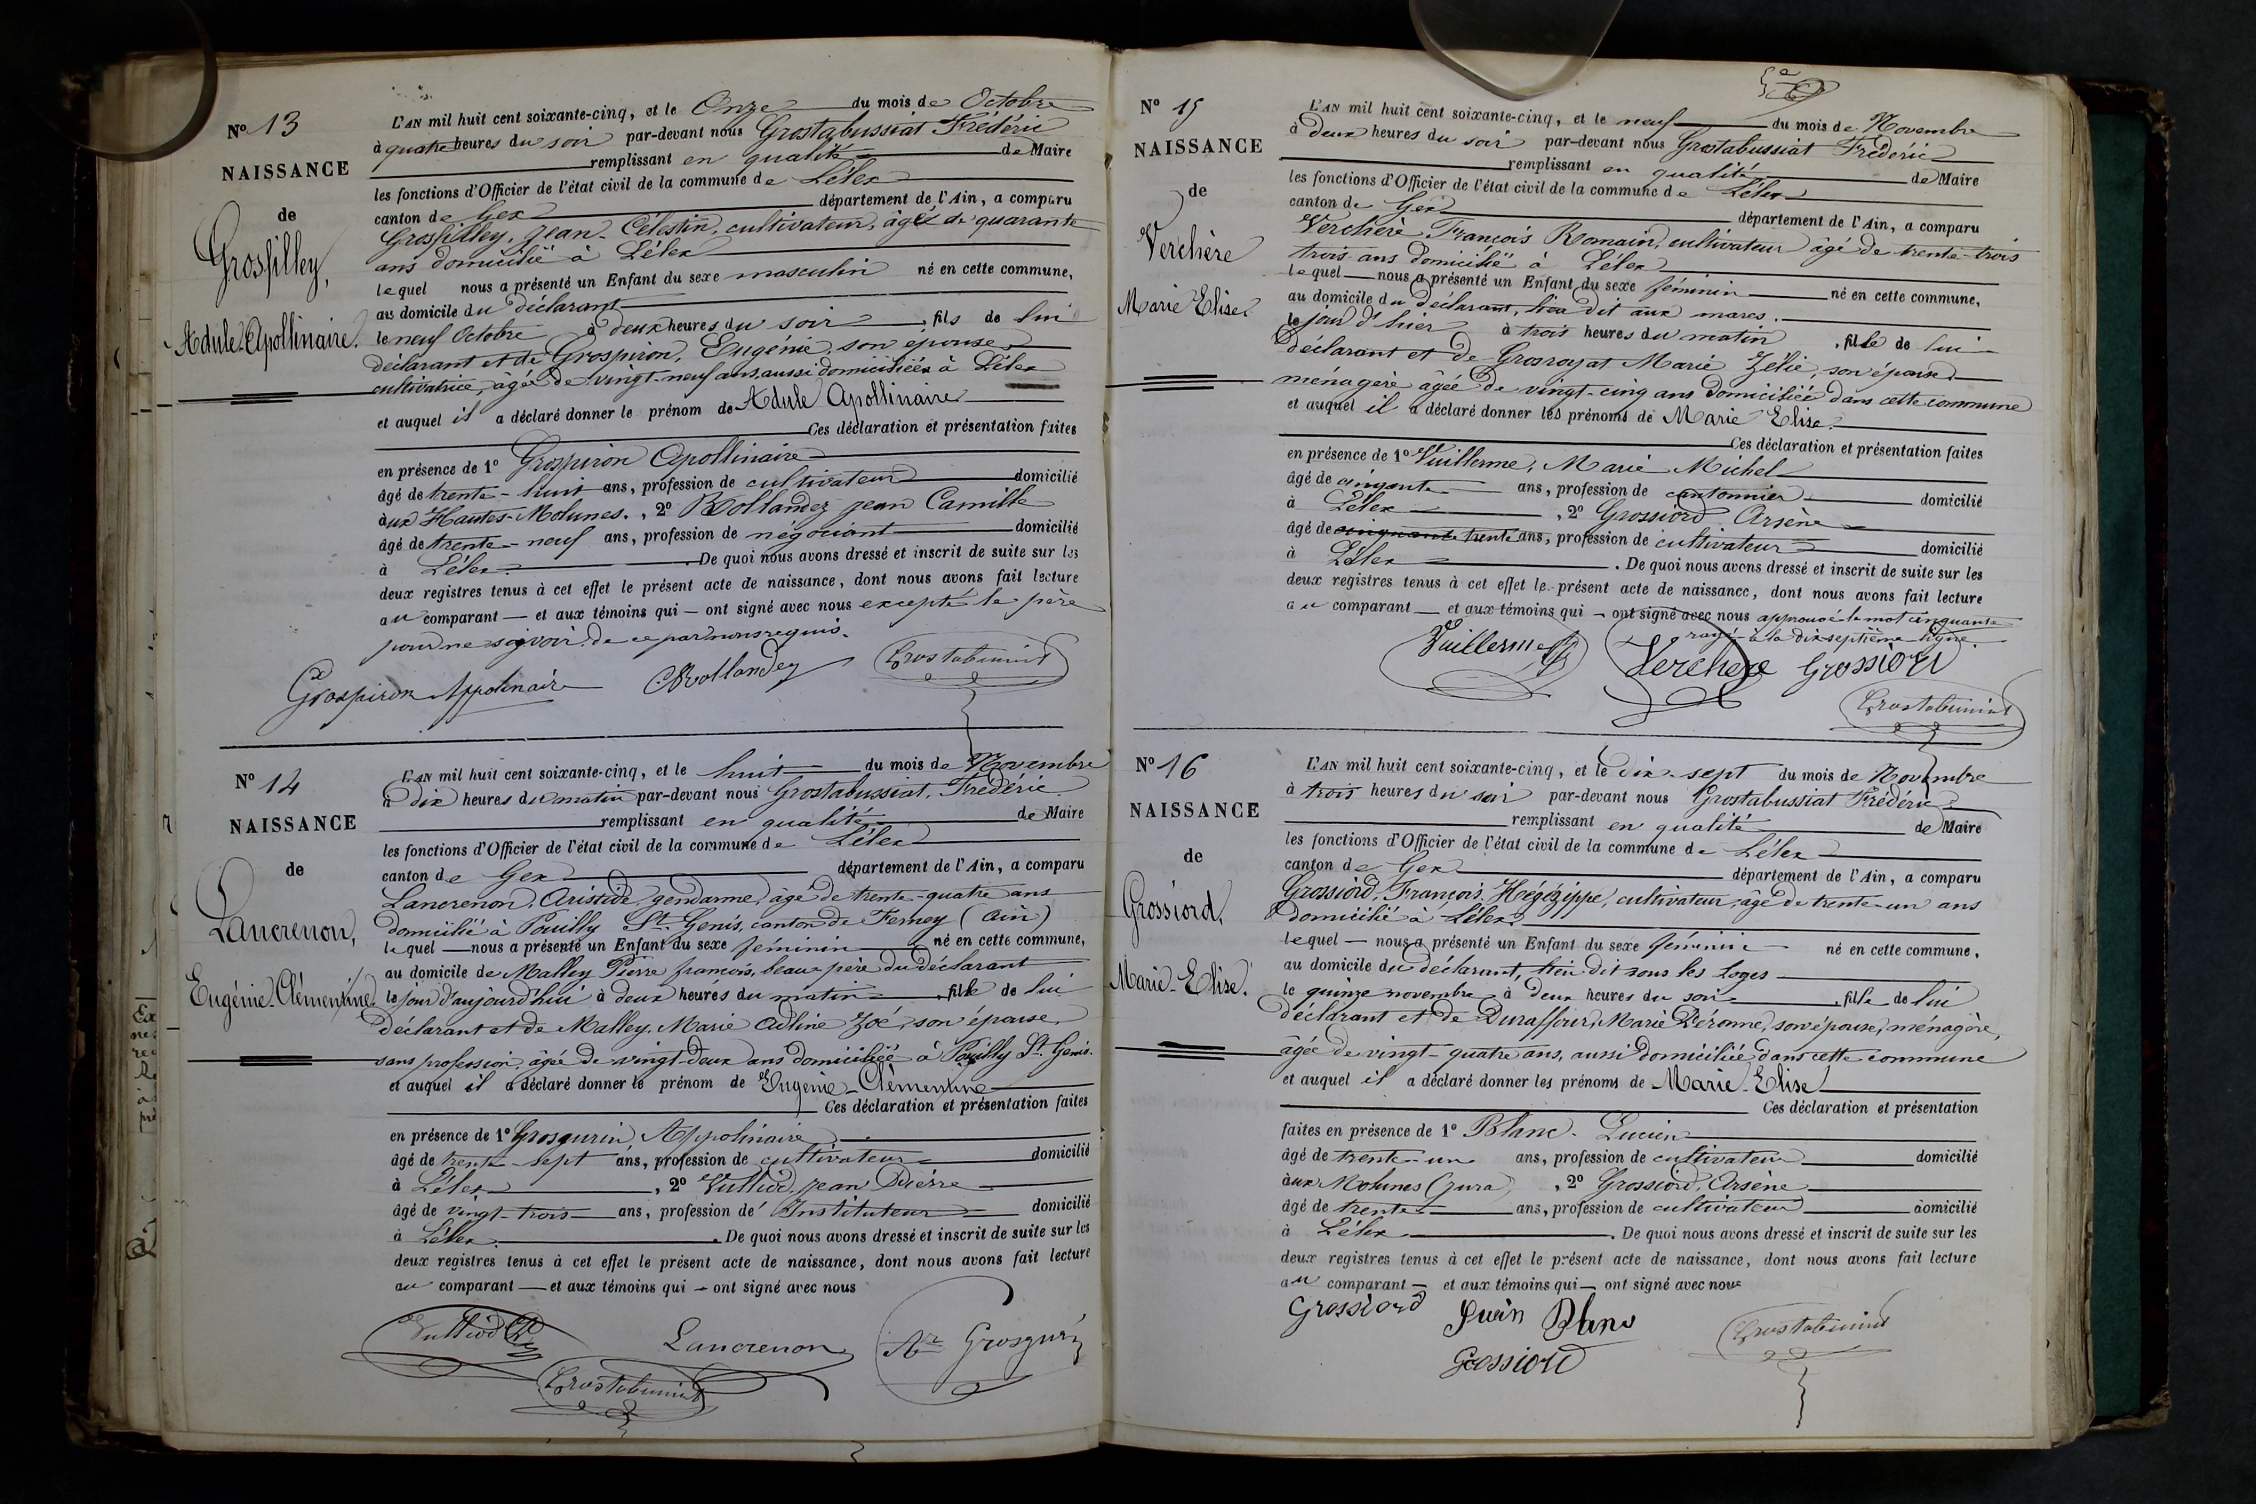 N° 13
NAISSANCE
de
Grosfilley,
Adule Apollinaire.
L'AN mil huit cent soixante-cinq, et le Onze du mois de Octobre
à quatre heures du soir par-devant nous Grostabussiat Frédéric
remplissant en qualité de Maire
les fonctions d'Officier de l'état civil de la commune de Lélex
canton de Gex département de l'Ain, a comparu
Grosfilley, Jean-Célestin, cultivateur, âgé de quarante
ans domicilié à Lélex
lequel nous a présenté un Enfant du sexe masculin né en cette commune,
au domicile du déclarant
le neuf Octobre à deux heures du soir, fils de lui
déclarant et de Grospiron, Eugénie, son épouse
cultivatrice, âgée de vingt-neuf ans, aussi domiciliée à Lélex
et auquel il a déclaré donner le prénom de Adule Apollinaire
Ces déclaration et présentation faites
en présence de 1° Grospiron Apollinaire
âgé de trente-huit ans, profession de cultivateur domicilié
aux Hautes-Molunes, 2° Rollandez jean Camille
âgé de trente-neuf ans, profession de négociant domicilié
à Lélex. De quoi nous avons dressé et inscrit de suite sur les
deux registres tenus à cet effet le présent acte de naissance, dont nous avons fait lecture
au comparant et aux témoins qui ont signé avec nous excepté le père
pour ne savoir de ce par nous requis.
Grospiron Appolinair CRollandez Grostabussiat
N° 14
NAISSANCE
de
Lancrenon,
Eugénie-Clémentine
L'AN mil huit cent soixante-cinq, et le huit du mois de Novembre
à dix heures du matin par-devant nous Grostabussiat, Frédéric
remplissant en qualité de Maire
les fonctions d'Officier de l'état civil de la commune de Lélex
canton de Gex département de l'Ain, a comparu
Lancrenon, Aristide, gendarme, âgé de trente-quatre ans
domicilié à Pouilly St. Genis, canton de Ferney (Ain)
lequel nous a présenté un Enfant du sexe féminin né en cette commune,
au domicile de Malley Pierre françois, beau-père du déclarant
le jour d'aujourd'hui à deux heures du matin, fille de lui
déclarant et de Malley, Marie Adline Zoé, son épouse
sans profession, âgée de vingt-deux ans domiciliée à Pouilly St. Genis.
et auquel il a déclaré donner le prénom de Eugénie-Clémentine
Ces déclaration et présentation faites
en présence de 1° Grosgurin Appolinaire
âgé de trente-sept ans, profession de cultivateur domicilié
à Lélex, 2° Vulliod, jean Pierre
âgé de vingt-trois ans, profession de Instituteur domicilié
à Lélex. De quoi nous avons dressé et inscrit de suite sur les
deux registres tenus à cet effet le présent acte de naissance, dont nous avons fait lecture
au comparant et aux témoins qui ont signé avec nous
Vulliod Lancrenon Grosgurin
Grostabussiat
N° 15
NAISSANCE
de
Verchère
Marie Elise.
L'AN mil huit cent soixante-cinq, et le neuf du mois de Novembre
à deux heures du soir par-devant nous Grostabussiat Frédéric
remplissant en qualité de Maire
les fonctions d'Officier de l'état civil de la commune de Lélex
canton de Gex département de l'Ain, a comparu
Verchère François Romain, cultivateur âgé de trente-trois
trois ans domicilié à Lélex
lequel nous a présenté un Enfant du sexe féminin né en cette commune,
au domicile du déclarant, lieu dit aux mares.
le jour d'hier à trois heures du matin, fille de lui
déclarant et de Grosroyat Marie Zélie, son épouse
ménagère âgée de vingt-cinq ans domiciliée dans cette commune
et auquel il a déclaré donner les prénoms de Marie Elise.
Ces déclaration et présentation faites
en présence de 1° Vuillerme, Marie Michel
âgé de cinqante ans, profession de cantonnier domicilié
à Lélex, 2° Grossiord Arsène
âgé de cinquante trente ans, profession de cultivateur domicilié
à Lélex. De quoi nous avons dressé et inscrit de suite sur les
deux registres tenus à cet effet le présent acte de naissance, dont nous avons fait lecture
au comparant et aux témoins qui ont signé avec nous approuvé le mot cinquante
rayé à la dix septième ligne.
Vuillerme Verchere Grossiord
Grostabussiat
N° 16
NAISSANCE
de
Grossiord,
Marie-Elise.
L'AN mil huit cent soixante-cinq, et le dix-sept du mois de Novembre
à trois heures du soir par-devant nous Grostabussiat Frédéric
remplissant en qualité de Maire
les fonctions d'Officier de l'état civil de la commune de Lélex
canton de Gex département de l'Ain, a comparu
Grossiord, François Hégézippe, cultivateur, âgé de trente-un ans
domicilié à Lélex
lequel nous a présenté un Enfant du sexe féminin né en cette commune,
au domicile du déclarant, lieu dit sous les Loges
le quinze novembre à deux heures du soir, fille de lui
déclarant et de Duraffour, Marie Péronne, son épouse, ménagère,
âgée de vingt-quatre ans, aussi domiciliée dans cette commune
et auquel il a déclaré donner les prénoms de Marie-Elise
Ces déclaration et présentation
faites en présence de 1° Blanc Lucien
âgé de trente-un ans, profession de cultivateur domicilié
aux Molunes (Jura), 2° Grossiord, Arsène
âgé de trente ans, profession de cultivateur domicilié
à Lélex. De quoi nous avons dressé et inscrit de suite sur les
deux registres tenus à cet effet le présent acte de naissance, dont nous avons fait lecture
au comparant et aux témoins qui ont signé avec nous
Grossiord Blanc Grostabussiat
Grossiord